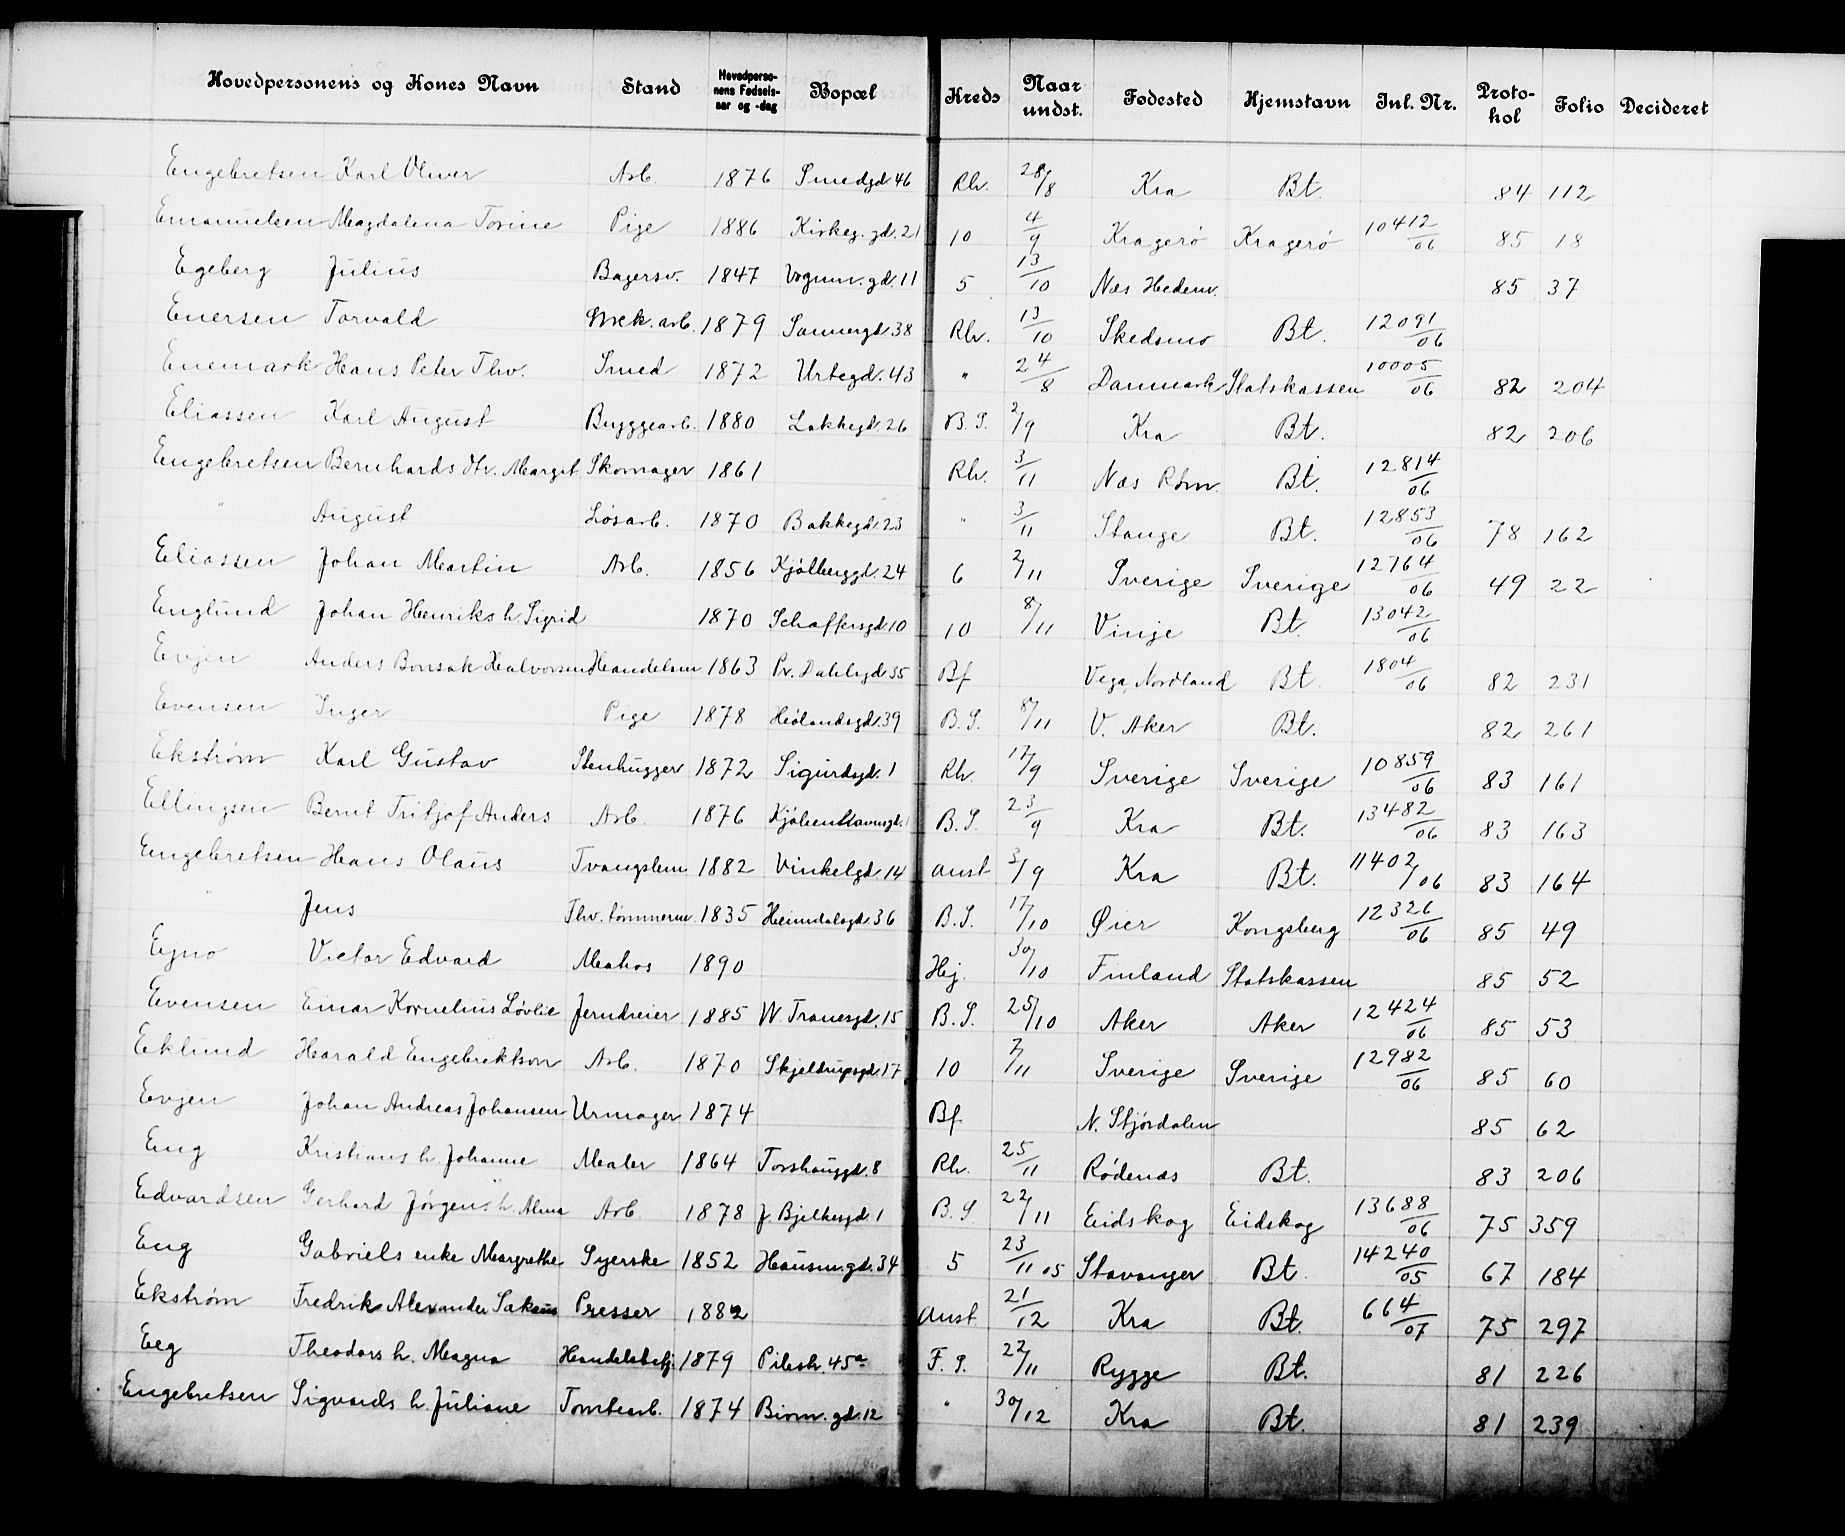 Hovedpersonens og Kones Navn Stand Hovedpersonens Fødselsaar og -dag Bopæl Kreds Naar undst. Fødested Hjemstavn Inl. Nr. Protokol Folio Decideret
Engebretsen Karl Oliver Arb. 1876 Smedgd 46 Rh. 28/8 Kra Bt. 84 112
Emanuelsen Magdalena Torine Pige 1886 Kirkeg. gd. 21 10 4/9 Kragerø Kragerø 10412/06 85 18
Egeberg Julius Bagersv. 1847 Vognm. gd. 11 5 13/10 Næs Hedem. 85 37
Enersen Torvald Mek. arb. 1879 Sannergd. 38 Rh. 13/10 Skedsmo Bt. 12091/06
Enemark Hans Peter Thv. Smed 1872 Urtegd. 43 " 24/8 Danmark Statskassen 10005/06 82 204
Eliassen Karl August Byggearb. 1880 Lakkegd. 26 B. S. 2/9 Kra Bt. 82 206
Engebretsen Bernhards dtr. Margit Skomager 1861 Rh. 3/11 Næs Rom. Bt. 12814/06
" August Løsarb. 1870 Bakkegd. 23 " 3/11 Stange Bt. 12853/06 78 162
Eliassen Johan Martin Arb. 1856 Kjølberggd. 24 6 2/11 Sverige Sverige 12764/06 49 22
Englund Johan Henriks h. Sigrid 1870 Schaffersgd. 10 10 8/11 Vinje Bt. 13042/06
Evjen Anders Bonsak Halvorsen Handelsm 1863 Pr. Dahlsgd. 35 Bf Vega, Nordland Bt. 1804/06 82 231
Evensen Inger Pige 1878 Hølandsgd. 39 B. S. 8/11 V. Aker Bt. 82 261
Ekstrøm Karl Gustav Stenhugger 1872 Sigurdsgd. 1 Rh. 17/9 Sverige Sverige 10859/06 83 161
Ellingsen Bernt Fritjof Anders Arb. 1876 Kjøbenhavnsgd. 1 B. S. 23/9 Kra Bt. 13482/06 83 163
Engebretsen Hans Olaus Tvangslem 1882 Vinkelgd. 14 Anst 3/9 Kra Bt. 11402/06 83 164
" Jens Thv. tømmerm. 1835 Heimdalsgd. 36 B. S. 17/10 Øier Kongsberg 12326/06 85 49
Egno Victor Edvard Matros 1890 Hj. 30/10 Finland Statskassen 85 52
Evensen Einar Kornelius Løvlie Jerndreier 1885 W. Tranesgd. 15 B. S. 25/10 Aker Aker 12424/06 85 53
Eklund Harald Engebrektson Arb. 1870 Skjeldrupsgd. 17 10 7/11 Sverige Sverige 12982/06 85 60
Evjen Johan Andreas Johansen Urmager 1874 Bf N. Stjørdalen 85 62
Eng Kristians h. Johanne Maler 1864 Torshauggd. 8 Rh. 25/11 Rødenæs Bt. 83 206
Edvardsen Gerhard Jørgens h. Alma Arb. 1878 J. Bjelkesgd 1 B. S. 22/11 Eidskog Eidskog 13688/06 75 359
Eng Gabriels enke Margrethe Syerske 1852 Hausm. gd. 34 5 23/11 05 Stavanger Bt. 14240/05 67 184
Ekstrøm Fredrik Alexander Presser 1882 Anst 21/12 Kra Bt. 664/07 75 297
Eeg Theodors h. Magna Handelsbetj 1879 Pilestr. 45a F. S. 22/11 Rygge Bt. 81 226
Engebretsen Sigvards h. Juliane Tomtearb. 1874 Bism. gd. 12 " 30/12 Kra Bt. 81 239